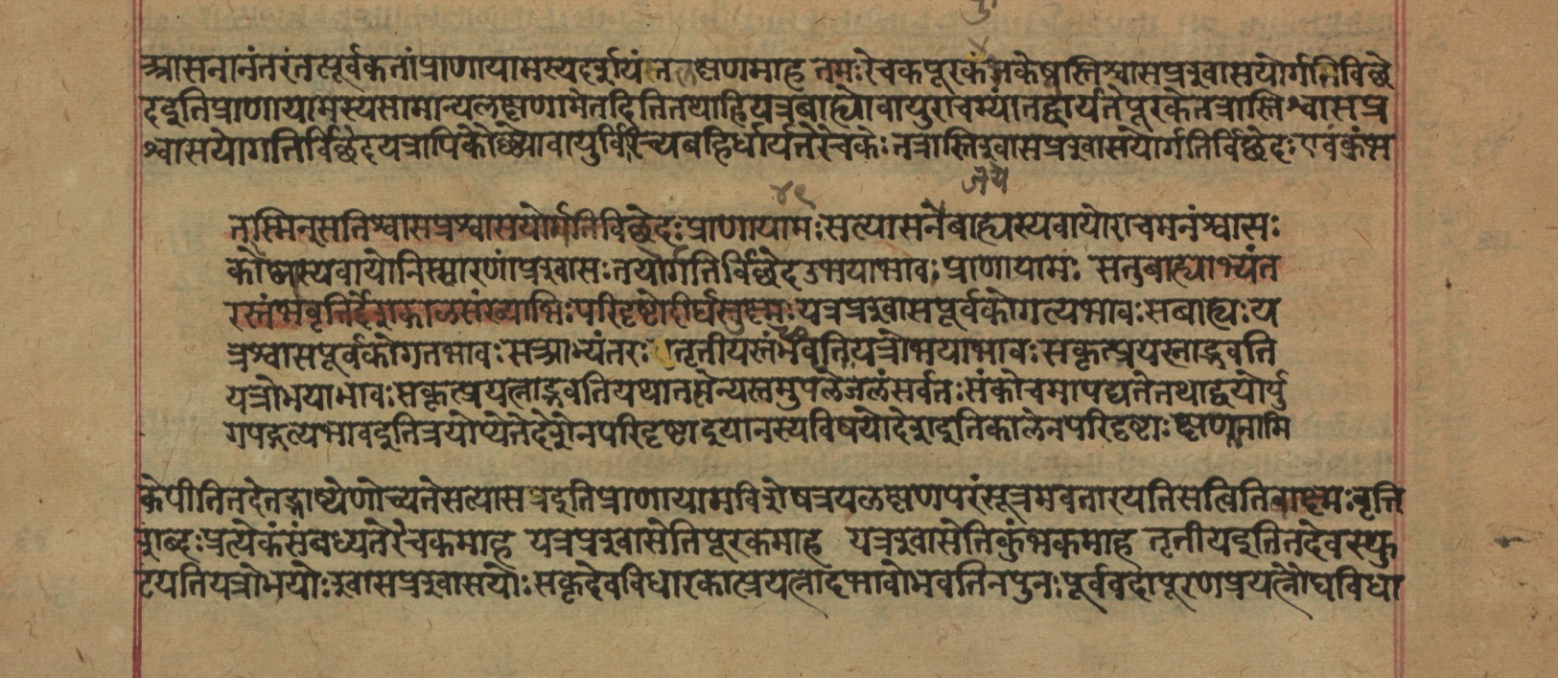 आसनानंतरंतत्पूर्वकतांप्राणायामस्यदर्शयंतल्लक्षणमाह तमः रेचकपूरककुंभकेष्वस्तिश्वासप्रश्वासयोर्गतिविछे
दइतिप्राणायामस्यसामान्यलक्षणमेतदितितथाहियत्रबाह्योवायुराचम्यांतर्द्धार्यतेपूरकेतत्रास्तिश्वासप्र
श्वासयोगतिर्विछेदयत्रापिकोष्ठ्योवायुर्विरिच्यबहिर्धार्यतेरेचकेःतत्रास्तिश्वासप्रश्वासयोर्गतिर्विछेदः एवंकुंभ
४९
तस्मिन्सतिश्वासप्रश्वासयोर्गतिविछेदःप्राणायामःसत्यासनेबाह्यस्यवायोराचमनंश्वासः
कोष्ठ्यस्यवायोनिस्सारणंप्रश्वासःतयोर्गतिर्विछेदउभयाभावःप्राणायामः सतुबाह्याभ्यंत
रस्तंभवृत्तिर्देशकालसंख्याभिःपरिदृष्टोदीर्घसूक्ष्मःयत्रप्रश्वासपूर्वकोगत्यभावःसबाह्यःय
त्रश्वासपूर्वकोगतभावःसआभ्यंतरः तृतीयस्तंभवृत्तियत्रोभयाभावःसकृत्प्रयत्नाद्भवति
यत्रोभयाभावःसकृत्प्रयत्नाद्भवतियथातप्तेन्यस्तमुपलेजलंसर्वतःसंकोचमापद्यतेतथाद्वयोर्यु
गपद्गत्यभावइतित्रयोप्येतेदेशेनपरिदृष्टाइयानस्यविषयोदेशइतिकालेनपरिदृष्टाःक्षणानामि
केपीतितदेतद्भाष्येणोच्यतेसत्यासनइतिप्राणायामविशेषत्रयलक्षणपरंसूत्रमवतारयतिसत्वितिबाह्यमःवृत्ति
शब्दःप्रत्येकंसंबध्यतेरेचकमाह यत्रप्रश्वासेतिपूरकमाह यत्रश्वासेतिकुंभकमाह तृतीयइतितदेवस्फु
टयतियत्रोभयोःश्वासप्रश्वासयोःसकृदेवविधारकात्प्रयत्नादभावोभवतिनपुनःपूर्ववदापूरणप्रयत्नौघविधा